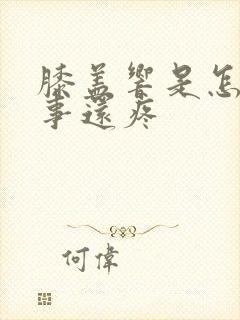 膝盖響是怎
事還疼
何偉